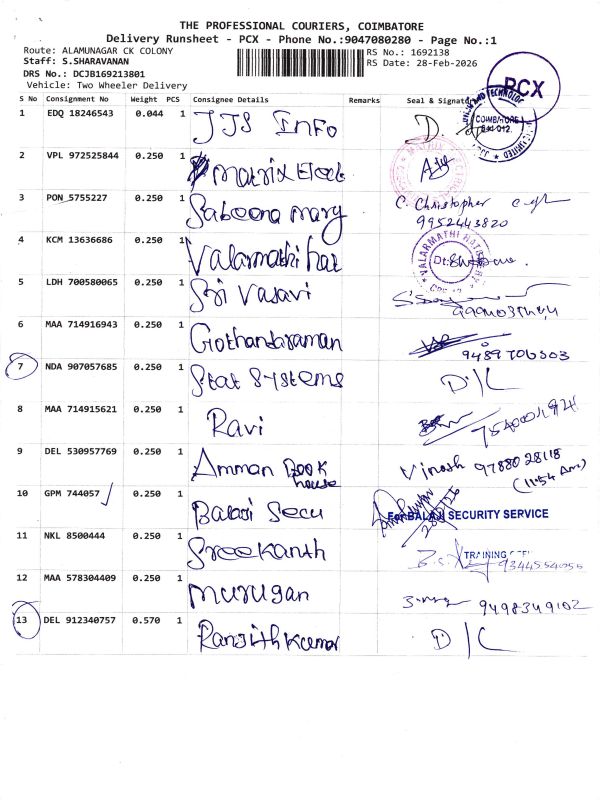 THE PROFESSIONAL COURIERS, COIMBATORE
Delivery Runsheet - PCX - Phone No.:9047080280 - Page No.:1
Route: ALAMUNAGAR CK COLONY
RS No.: 1692138
Staff: S.SHARAVANAN
RS Date: 28-Feb-2026
DRS No.: DCJB169213801
Vehicle: Two Wheeler Delivery
PCX
S No Consignment No Weight PCS Consignee Details Remarks Seal & Signature
1 EDQ 18246543 0.044 1 JJS INFO
2 VPL 972525844 0.250 1 Matrix
3 PON_5755227 0.250 1 Sabeena Mary C. Christopher
9952443820
4 KCM 13636686 0.250 1 Valarmathi
5 LDH 700580065 0.250 1 Sri Vasavi
6 MAA 714916943 0.250 1 Gothandaraman
7 NDA 907057685 0.250 1 Stat Systems D/L
8 MAA 714915621 0.250 1 Ravi
9 DEL 530957769 0.250 1 Amman Book house Vinoth 9788028118
(11:54 Am)
10 GPM 744057 0.250 1 Balaji Secu For BALAJI SECURITY SERVICE
11 NKL 8500444 0.250 1 Sreekanth TRAINING
12 MAA 578304409 0.250 1 Murugan 9498349102
13 DEL 912340757 0.570 1 Ranjithkumar D/L